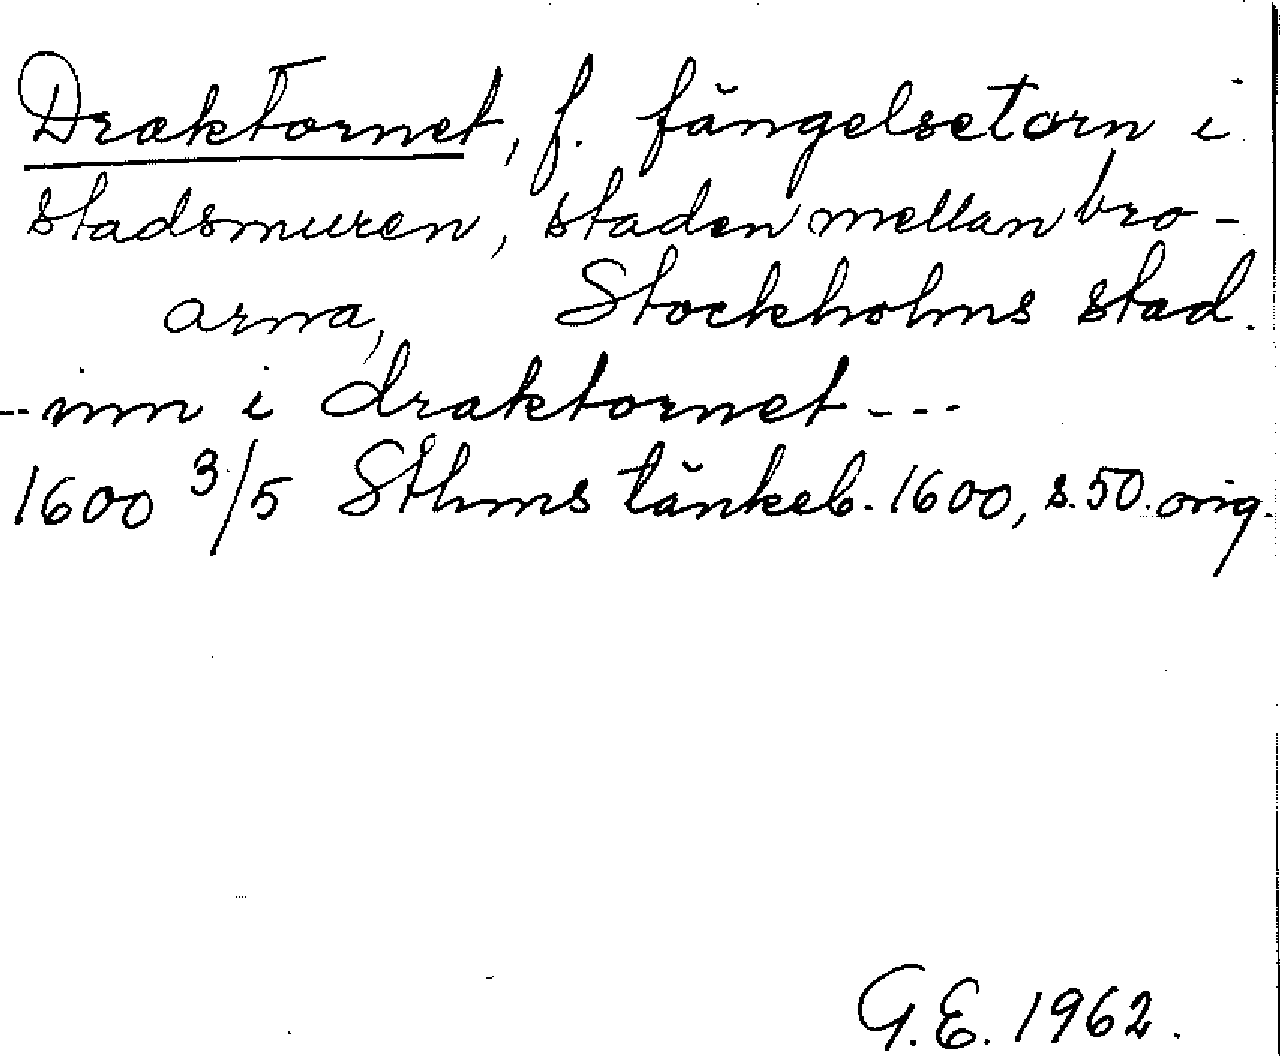 Draktornet, f. fängelsetorn i
stadsmuren, staden mellan bro-
arna, Stockholms stad.
--inn i draktornet ---
1600 3/5 Sthms tänkeb. 1600, s. 50. orig.
G.E. 1962.